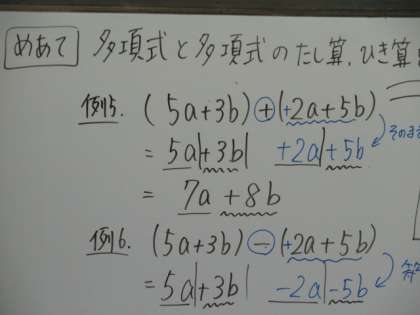 めあて 多項式と多項式のたし算、ひき算
例5. (5a+3b)+(+2a+5b)
= 5a|+3b| +2a|+5b そのまま
= 7a +8b
例6. (5a+3b)-(+2a+5b)
= 5a|+3b| -2a|-5b 符